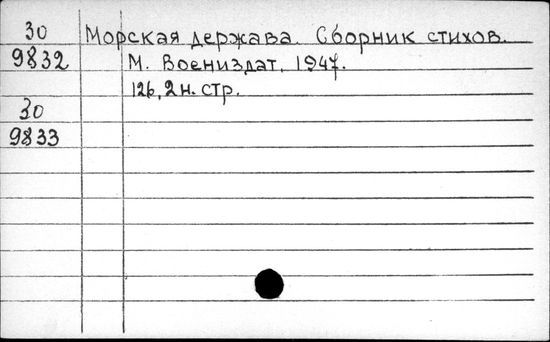 30
9832
30
9833
Морская держава. Сборник стихов.
М. Воениздат, 1947.
126, 2 н. стр.